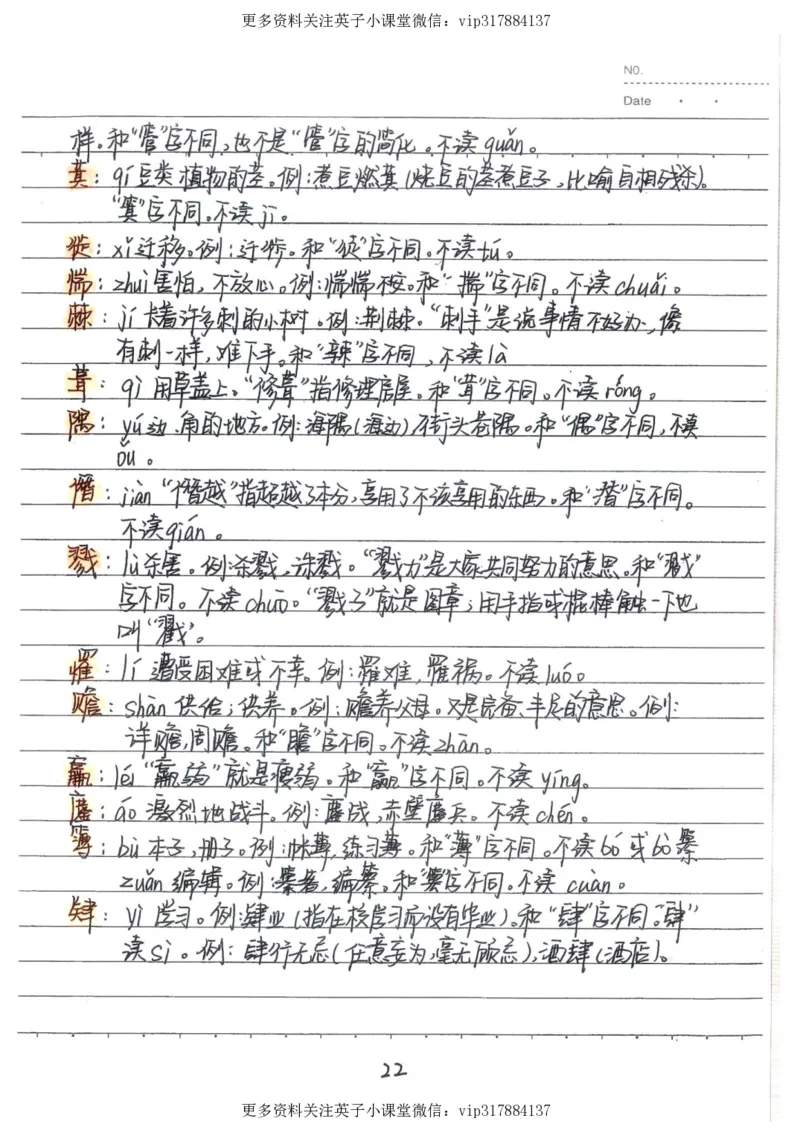 更多资料关注英子小课堂微信：vip317884137
NO.
Date
样。和“管”字不同，也不是“管”字的简化。不读guǎn。
萁：qí豆类植物的茎。例：煮豆燃萁（烧豆的茎煮豆子，比喻自相残杀）。
“箕”字不同。不读jī。
徙：xǐ迁移。例：迁徙。和“徒”字不同。不读tú。
惴：zhuì害怕，不放心。例：惴惴不安。和“揣”字不同。不读chuǎi。
棘：jí长着许多刺的小树。例：荆棘。“刺手”是说事情不好办，像
有刺一样，难下手。和“辣”字不同，不读là
葺：qì用草盖上。“修葺”指修理房屋。和“茸”字不同。不读róng。
隅：yú边、角的地方。例：海隅（海边），街头巷隅。和“偶”字不同，不读
ǒu。
僭：jiàn“僭越”指超越了本分，享用了不该享用的东西。和“潜”字不同。
不读qián。
戮：lù杀害。例：杀戮、诛戮。“戮力”是大家共同努力的意思。和“戳”
字不同。不读chuō。“戳子”就是图章；用手指或棍棒触一下也
叫“戳”。
罹：lí遭受困难或不幸。例：罹难，罹祸。不读luó。
赡：shàn供给；供养。例：赡养父母。又是完备、丰足的意思。例：
详赡，周赡。和“瞻”字不同。不读zhān。
羸：léi“羸弱”就是瘦弱。和“赢”字不同。不读yíng。
鏖：áo激烈地战斗。例：鏖战，赤壁鏖兵。不读chén。
簿：bù本子，册子。例：帐簿，练习簿。和“薄”字不同。不读bó或báo纂
zuǎn编辑。例：纂者，编纂。和“篡”字不同。不读cuàn。
肄：yì学习。例：肄业（指在校学习而没有毕业）。和“肆”字不同。“肆”
读sì。例：肆行无忌（任意妄为，毫无顾忌），酒肆（酒店）。
22
更多资料关注英子小课堂微信：vip317884137